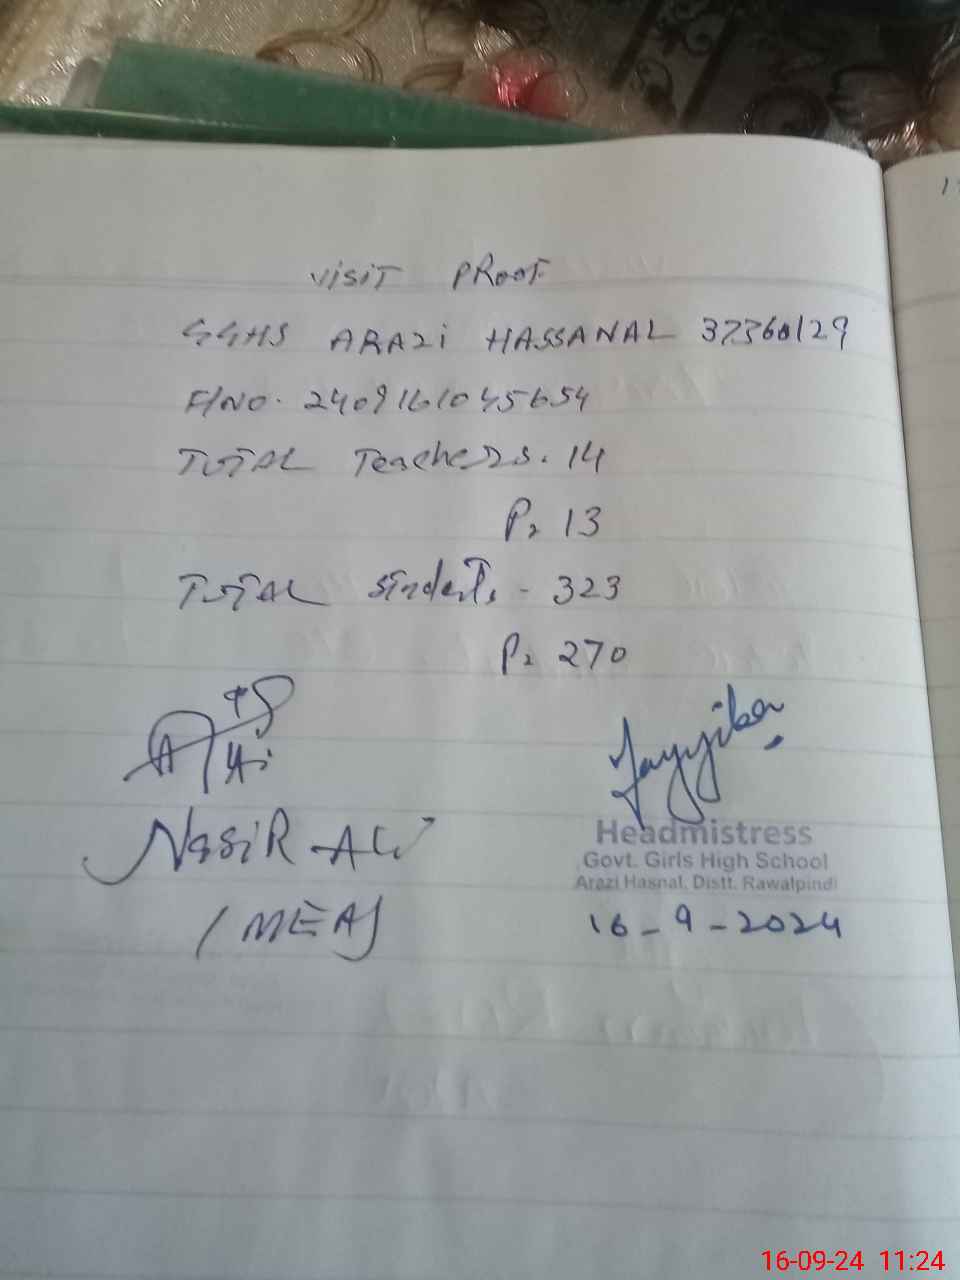 VISIT PROOF
GGHS ARAZI HASSANAL 37360129
F/NO. 2409161045654
TOTAL Teachers. 14
P2 13
TOTAL Students - 323
P2 270
Tayyiba
NASIR ALI
(MEA)
Headmistress
Govt. Girls High School
Arazi Hasnal, Distt. Rawalpindi
16-9-2024
16-09-24 11:24